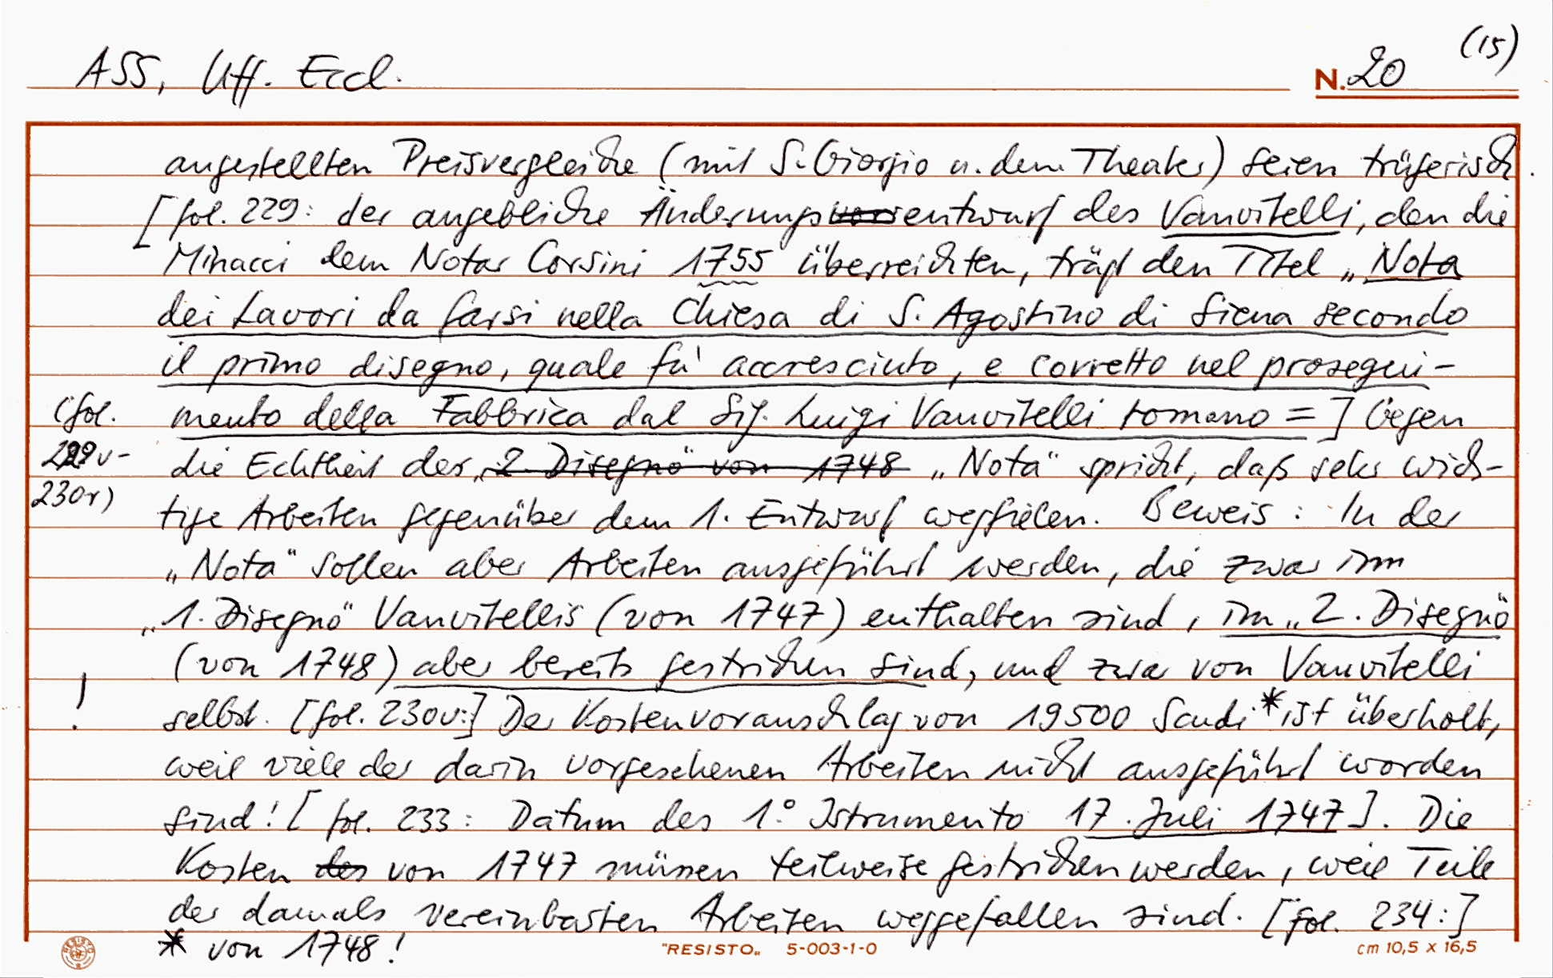 (15)
ASS, Uff. Eccl. N. 20
angestellten Preisvergleiche (mit S. Giorgio u. dem Theater) seien trügerisch.
[fol. 229: der angebliche Änderungsentwurf des Vanvitelli, den die
Minacci dem Notar Corsini 1755 überreichten, trägt den Titel „Nota
dei Lavori da farsi nella Chiesa di S. Agostino di Siena secondo
il primo disegno, quale fu' accresciuto, e corretto nel prosegui-
(fol. mento della Fabbrica dal Sig. Luigi Vanvitelli romano =] Gegen
229v- die Echtheit der „2. Disegno" von 1748 „Nota" spricht, daß sehr wich-
230r) tige Arbeiten gegenüber dem 1. Entwurf wegfielen. Beweis: In der
„Nota" sollen aber Arbeiten ausgeführt werden, die zwar im
„1. Disegno" Vanvitellis (von 1747) enthalten sind, im „2. Disegno"
(von 1748) aber bereits gestrichen sind, und zwar von Vanvitelli
! selbst. [fol. 230v:] Der Kostenvoranschlag von 19500 Scudi * ist überholt,
weil viele der darin vorgesehenen Arbeiten nicht ausgeführt worden
sind! [fol. 233: Datum des 1.° Istrumento 17. Juli 1747]. Die
Kosten des von 1747 müssen teilweise gestrichen werden, weil Teile
der damals vereinbarten Arbeiten weggefallen sind. [fol. 234:]
* von 1748!
RESISTO "RESISTO„ 5-003-1-0 cm 10,5 x 16,5